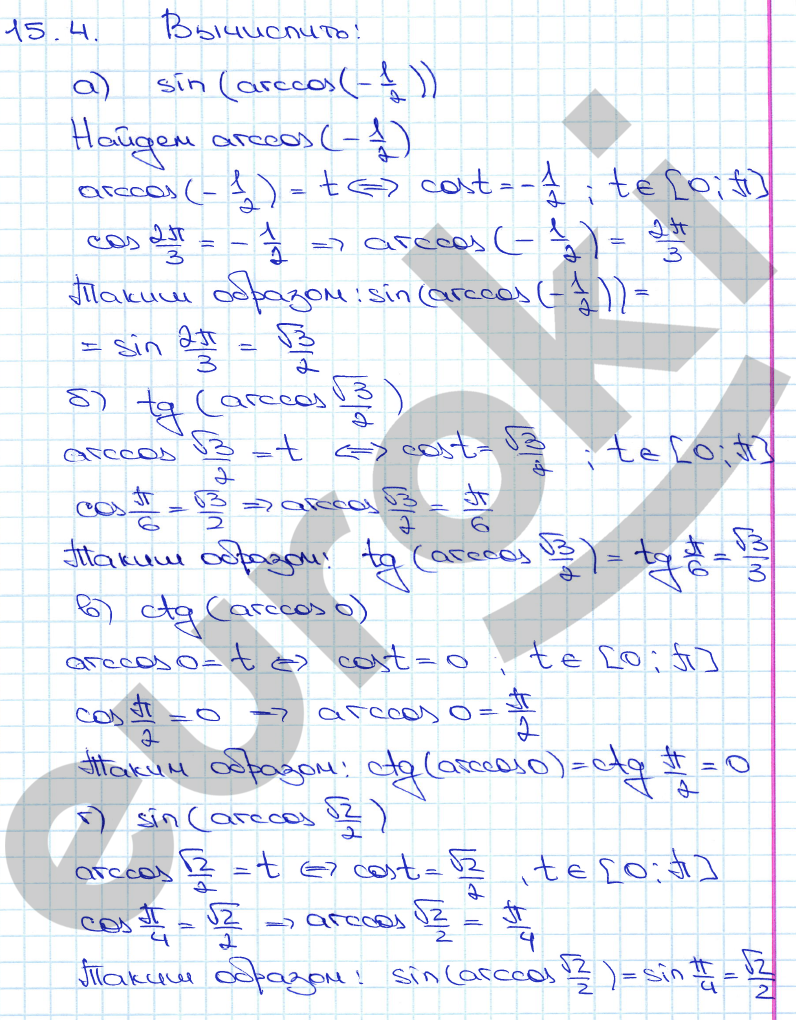 15.4. Вычислить:
а) sin(arccos(-1/2))
Найдем arccos(-1/2)
arccos(-1/2) = t ⇔ cost = -1/2 ; t ∈ [0; π]
cos 2π/3 = -1/2 ⇒ arccos(-1/2) = 2π/3
Таким образом: sin(arccos(-1/2)) =
= sin 2π/3 = √3/2
б) tg(arccos √3/2)
arccos √3/2 = t ⇔ cost = √3/2 ; t ∈ [0; π]
cos π/6 = √3/2 ⇒ arccos √3/2 = π/6
Таким образом: tg(arccos √3/2) = tg π/6 = √3/3
в) ctg(arccos 0)
arccos 0 = t ⇔ cost = 0 ; t ∈ [0; π]
cos π/2 = 0 ⇒ arccos 0 = π/2
Таким образом: ctg(arccos 0) = ctg π/2 = 0
г) sin(arccos √2/2)
arccos √2/2 = t ⇔ cost = √2/2 , t ∈ [0; π]
cos π/4 = √2/2 ⇒ arccos √2/2 = π/4
Таким образом: sin(arccos √2/2) = sin π/4 = √2/2
euroki